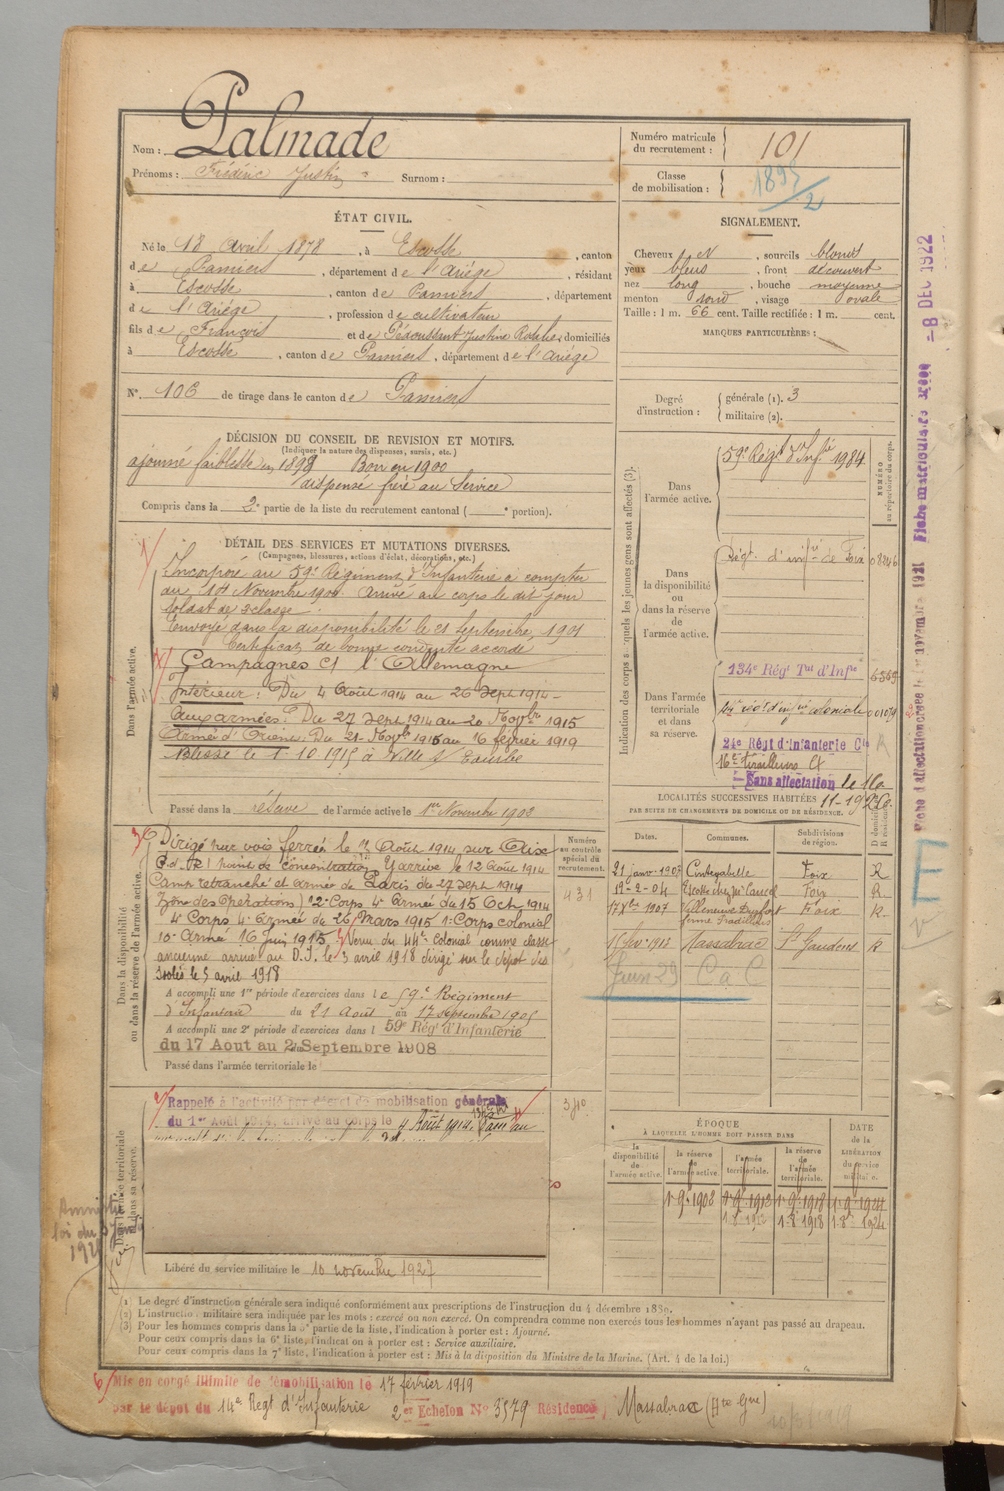 Nom : Palmade
Prénoms : Frédéric Justin Surnom :
Numéro matricule
du recrutement : 101
Classe
de mobilisation : 1895/2
ÉTAT CIVIL.
Né le 18 Avril 1878, à Escosse, canton
de Pamiers, département de l'Ariège, résidant
à Escosse, canton de Pamiers, département
de l'Ariège, profession de cultivateur
fils de François et de Pédoussant Justine Rosalie domiciliés
à Escosse, canton de Pamiers, département de l'Ariège
N° 106 de tirage dans le canton de Pamiers
SIGNALEMENT.
Cheveux et, sourcils blonds
yeux bleus, front découvert
nez long, bouche moyenne
menton rond, visage ovale
Taille : 1 m. 66 cent. Taille rectifiée : 1 m. cent.
MARQUES PARTICULIÈRES :
Degré
d'instruction :
générale (1). 3
militaire (2).
DÉCISION DU CONSEIL DE REVISION ET MOTIFS.
(Indiquer la nature des dispenses, sursis, etc.)
ajourné faiblesse en 1899 Bon en 1900
dispensé frère au Service
Compris dans la 2e partie de la liste du recrutement cantonal ( e portion).
DÉTAIL DES SERVICES ET MUTATIONS DIVERSES.
(Campagnes, blessures, actions d'éclat, décorations, etc.)
Dans l'armée active.
1/ Incorporé au 59e Régiment d'Infanterie à compter
du 1er Novembre 1900. Arrivé au corps le dit jour
soldat de 2e classe.
Envoyé dans la disponibilité le 21 Septembre 1901
Certificat de bonne conduite accordé
Campagnes Ct l'Allemagne
Intérieur : Du 4 Août 1914 au 26 Sept 1914 -
Aux armées : Du 27 Sept 1914 au 20 Novbre 1915
Armée d'Orient : Du 21 Novb 1915 au 16 février 1919
Blessé le 1-10-1915 à Ville s/ Tourbe
Passé dans la réserve de l'armée active le 1er Novembre 1903
Indication des corps auxquels les jeunes gens sont affectés (3).
NUMÉRO
au répertoire du corps.
Dans
l'armée active.
59e Régt d'Infie 1984
Dans
la disponibilité
ou
dans la réserve
de
l'armée active.
Régt d'infie de Foix
Dans l'armée
territoriale
et dans
sa réserve.
134e Régt Tal d'Infie
24e Régt d'Infanterie Cle
16e tirailleurs
Sans affectation le 10-
11-1926.
Dans la disponibilité
ou dans la réserve de l'armée active.
3/ Dirigé par voie ferrée le 3 Août 1914 sur Aire
point de concentration Y arrive le 12 Août 1914
Camp retranché et armée de Paris du 27 Sept 1914
Zone des Opérations 2e Corps 4e Armée du 15 Oct 1914
4 Corps 4e Armée du 26 Mars 1915 1er Corps colonial
10e Armée 16 Juin 1915 Venu du 44e Colonial comme classe
ancienne arrivé au D.I. le 3 avril 1918 dirigé sur le dépôt des
isolés le 5 avril 1918
A accompli une 1re période d'exercices dans le 59e Régiment
d'Infanterie du 21 Août au 17 septembre 1905
A accompli une 2e période d'exercices dans l 59e Rég' d'Infanterie
du 17 Aout au 2 Septembre 1908
Passé dans l'armée territoriale le
Numéro
au contrôle
spécial du
recrutement.
431
340
LOCALITÉS SUCCESSIVES HABITÉES
PAR SUITE DE CHANGEMENTS DE DOMICILE OU DE RÉSIDENCE.
Dates. Communes. Subdivisions de région. D domicile R résidence
21 janv 1903 Cintegabelle Foix R
19-2-04 Escosse Foix R
17 Xbre 1907 Villeneuve Foix R
15 fév 1913 Massabrac St Gaudens R
Juin 29 C a C
Dans l'armée territoriale
et dans sa réserve.
Rappelé à l'activité par décret de mobilisation générale
du 1er Août 1914. Arrivé au corps le 4 Août 1914.
Libéré du service militaire le 10 novembre 1927
Amnistie
loi du 3 Janv
1925
ÉPOQUE
À LAQUELLE L'HOMME DOIT PASSER DANS
la disponibilité de l'armée active.
la réserve de l'armée active.
l'armée territoriale.
la réserve de l'armée territoriale.
DATE
de la
LIBÉRATION
du service
militaire.
1-9e 1903 1-9e 1913 1-9e 1918 1-9e 1924
1-8 1913 1-8 1918 1-8 1924
(1) Le degré d'instruction générale sera indiqué conformément aux prescriptions de l'instruction du 4 décembre 1889.
(2) L'instruction militaire sera indiquée par les mots : exercé ou non exercé. On comprendra comme non exercés tous les hommes n'ayant pas passé au drapeau.
(3) Pour les hommes compris dans la 5e partie de la liste, l'indication à porter est : Ajourné.
Pour ceux compris dans la 6e liste, l'indication à porter est : Service auxiliaire.
Pour ceux compris dans la 7e liste, l'indication à porter est : Mis à la disposition du Ministre de la Marine. (Art. 4 de la loi.)
6/ Mis en congé illimité de démobilisation le 17 février 1919
par le dépôt du 14e Régt d'Infanterie 2er Echelon No 3579 Résidence Massabrac (Hte Gne)
Fiche matriculaire créée - 8 DEC 1922
Fiche d'affectation créée le novembre 1921